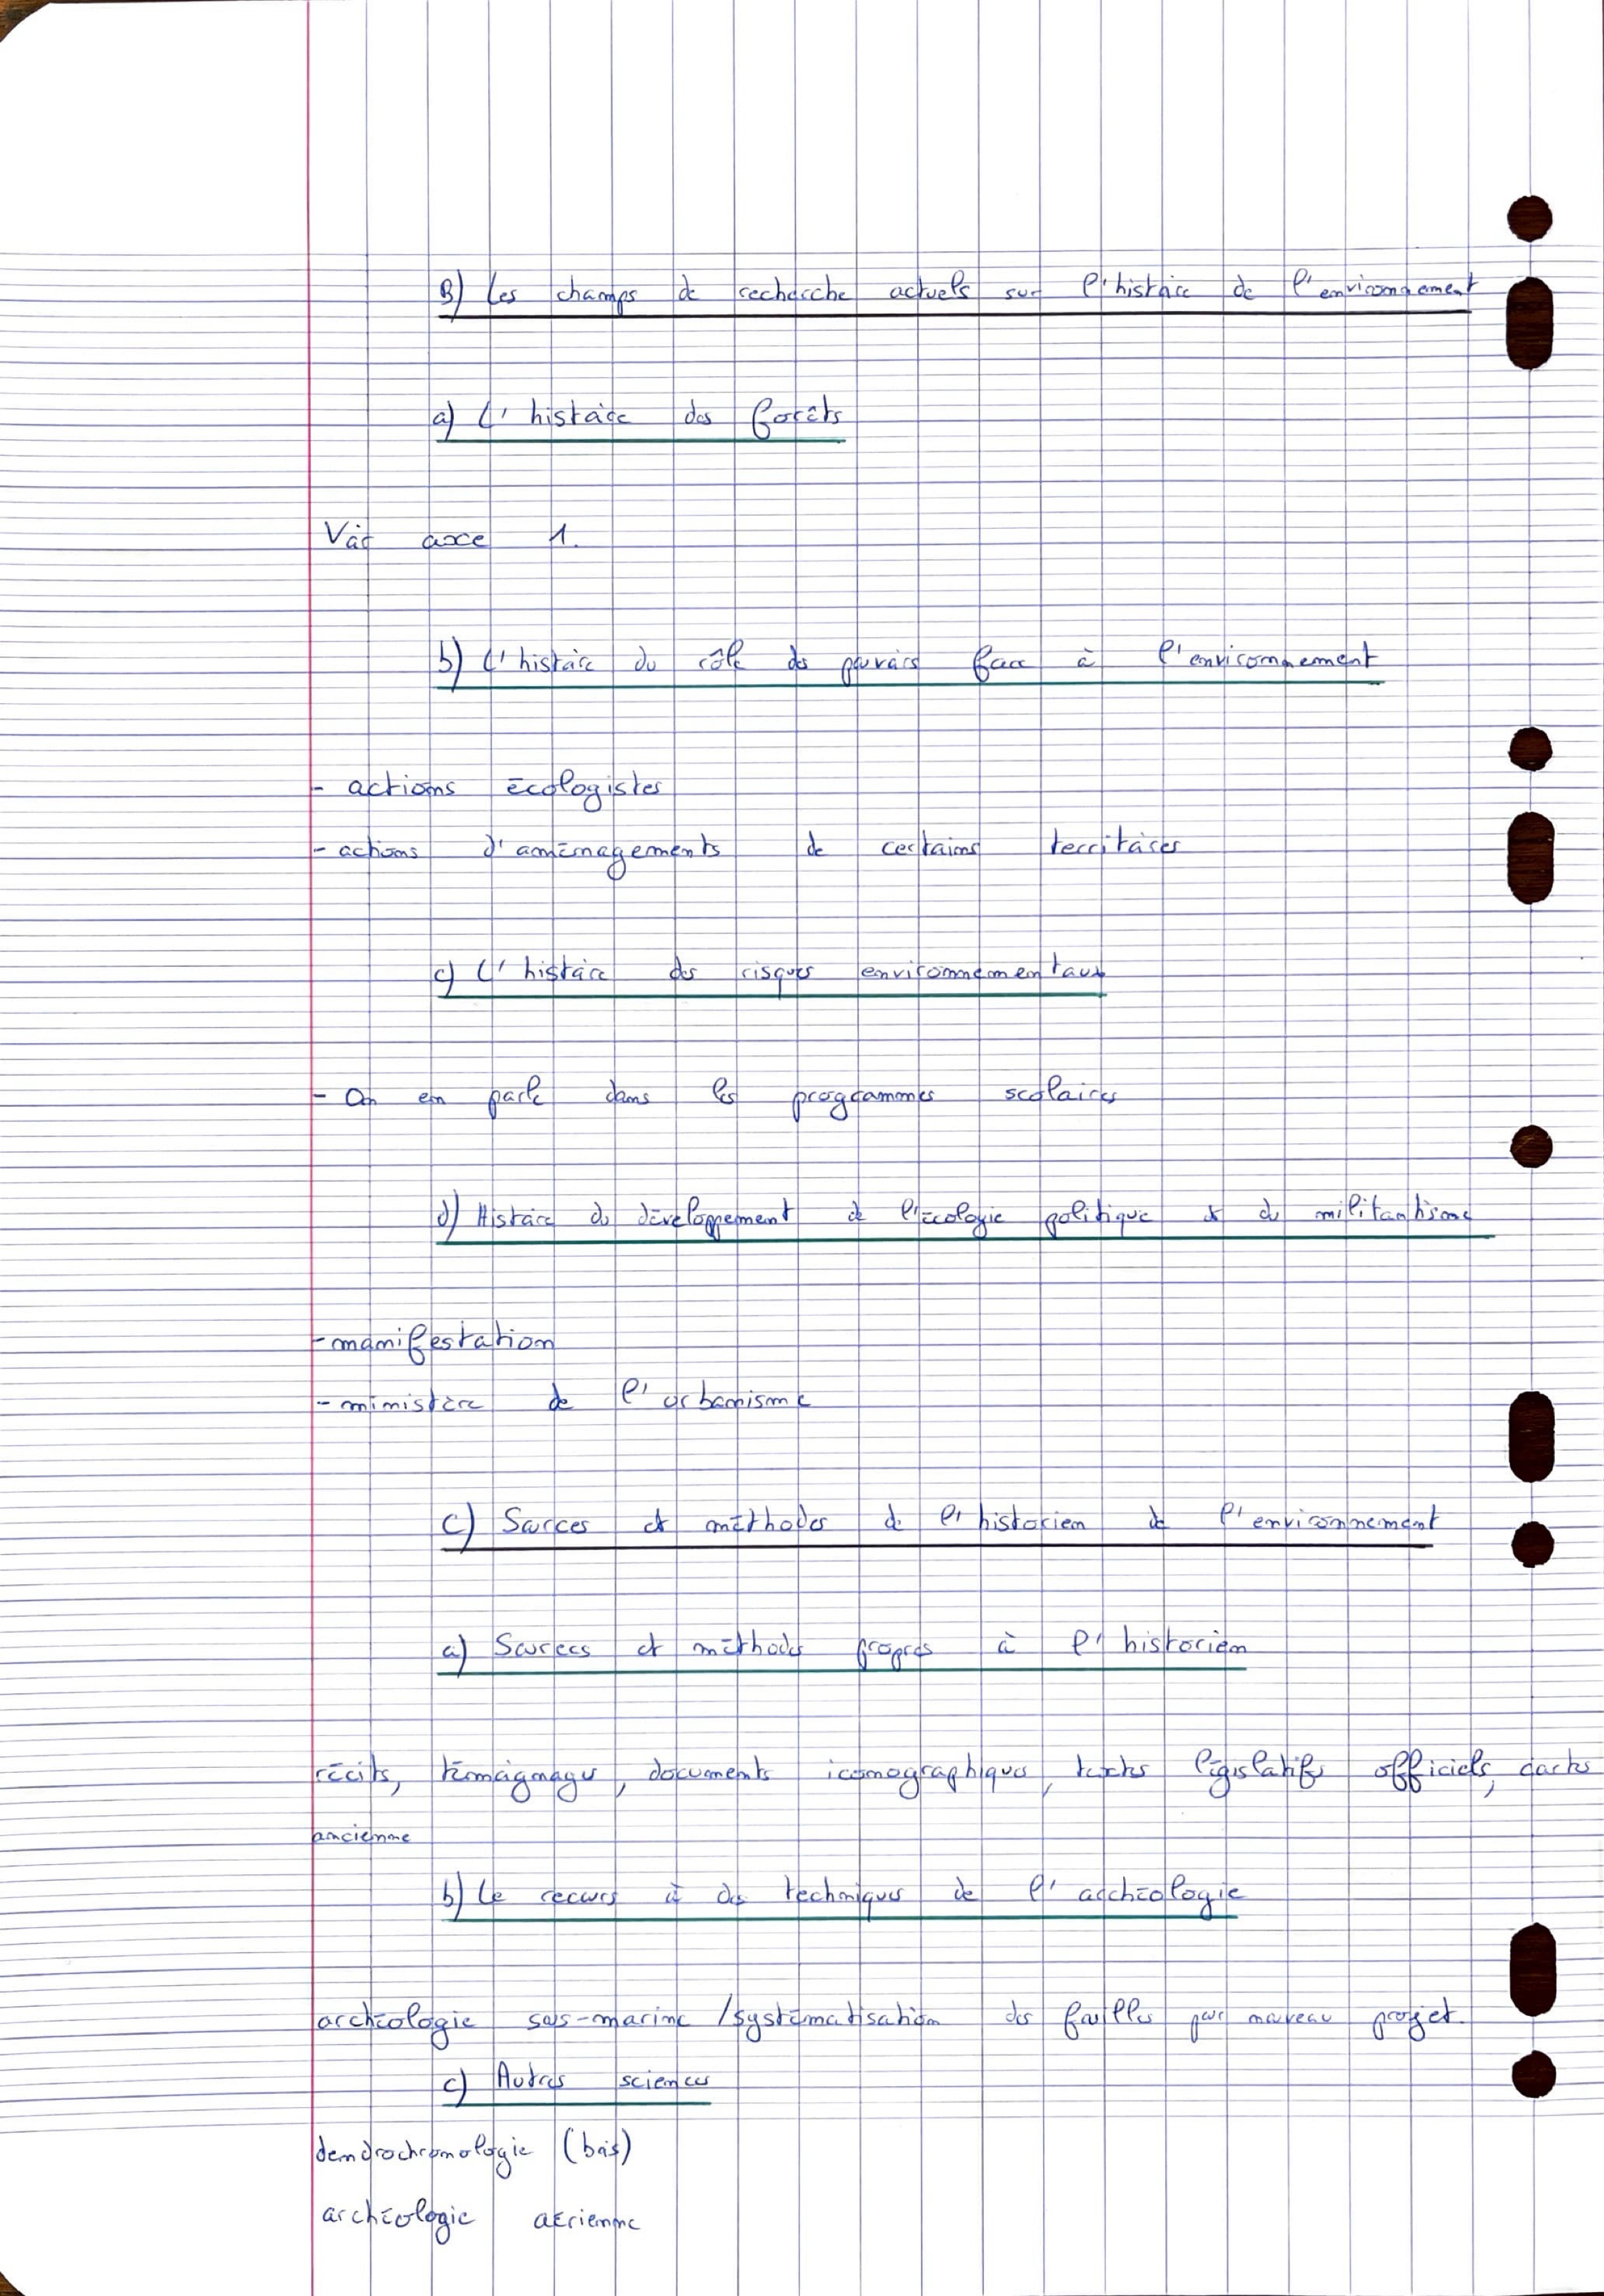 B) Les champs de recherche actuels sur l'histoire de l'environnement
a) L'histoire des forêts
Voir axe 1.
b) L'histoire du rôle des pouvoirs face à l'environnement
- actions écologistes
- actions d'aménagements de certains territoires
c) L'histoire des risques environnementaux
- On en parle dans les programmes scolaires
d) Histoire du développement de l'écologie politique et du militantisme
- manifestation
- ministère de l'urbanisme
C) Sources et méthodes de l'historien de l'environnement
a) Sources et méthodes propres à l'historien
récits, témoignages, documents iconographiques, textes législatifs officiels, cartes
ancienne
b) Le recours à des techniques de l'archéologie
archéologie sous-marine / systématisation des fouilles pour nouveau projet.
c) Autres sciences
dendrochronologie (bois)
archéologie aérienne